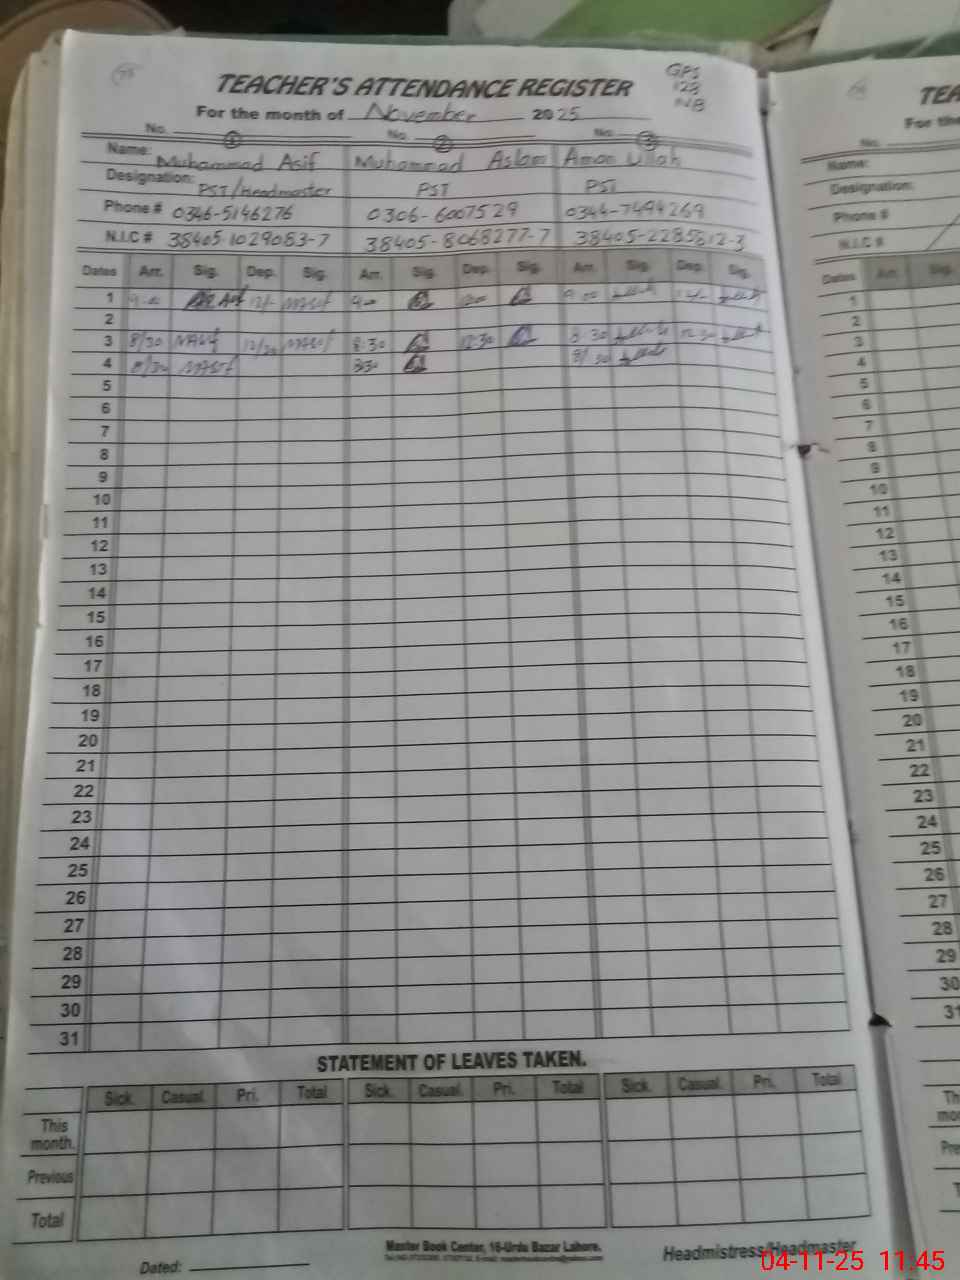 TEACHER'S ATTENDANCE REGISTER
GPS
128
NB
For the month of November 2025
No. 1 No. 2 No. 3
Name: Muhammad Asif Muhammad Aslam Aman Ullah
Designation: PST/Headmaster PST PST
Phone # 0346-5146276 0306-6007529 0344-7494269
N.I.C # 38405-1029083-7 38405-8068277-7 38405-2285812-3
Dates Arr. Sig. Dep. Sig. Arr. Sig. Dep. Sig. Arr. Sig. Dep. Sig.
1 9-00 9-00 12-00 9-00
2
3 8/30 12/30 8:30 12:30 8:30 12:30
4 8/30 8:30 8/30
5
6
7
8
9
10
11
12
13
14
15
16
17
18
19
20
21
22
23
24
25
26
27
28
29
30
31
STATEMENT OF LEAVES TAKEN.
Sick. Casual. Pri. Total Sick. Casual. Pri. Total Sick. Casual. Pri. Total
This
month.
Previous
Total
Master Book Center, 16-Urdu Bazar Lahore.
Dated:
Headmistress/Headmaster
TEA
For the
No.
Name:
Designation:
Phone #
N.I.C #
Dates Arr. Sig.
1
2
3
4
5
6
7
8
9
10
11
12
13
14
15
16
17
18
19
20
21
22
23
24
25
26
27
28
29
30
31
Th
mo
Pre
T
04-11-25 11:45